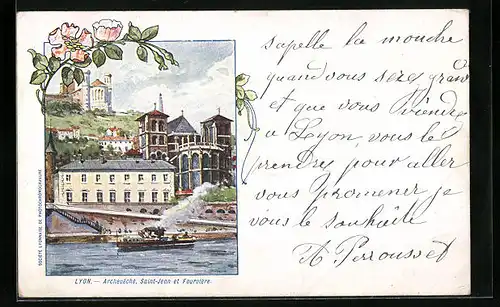 s'apelle la mouche
quand vous serez grand
et que vous viendrez
a Lyon, vous le
prendres pour aller
vous promener je
vous le souhaite
A Perrousset
LYON. — Archevêché, Saint-Jean et Fourvière.
SOCIÉTÉ LYONNAISE DE PHOTOCHROMOGRAVURE